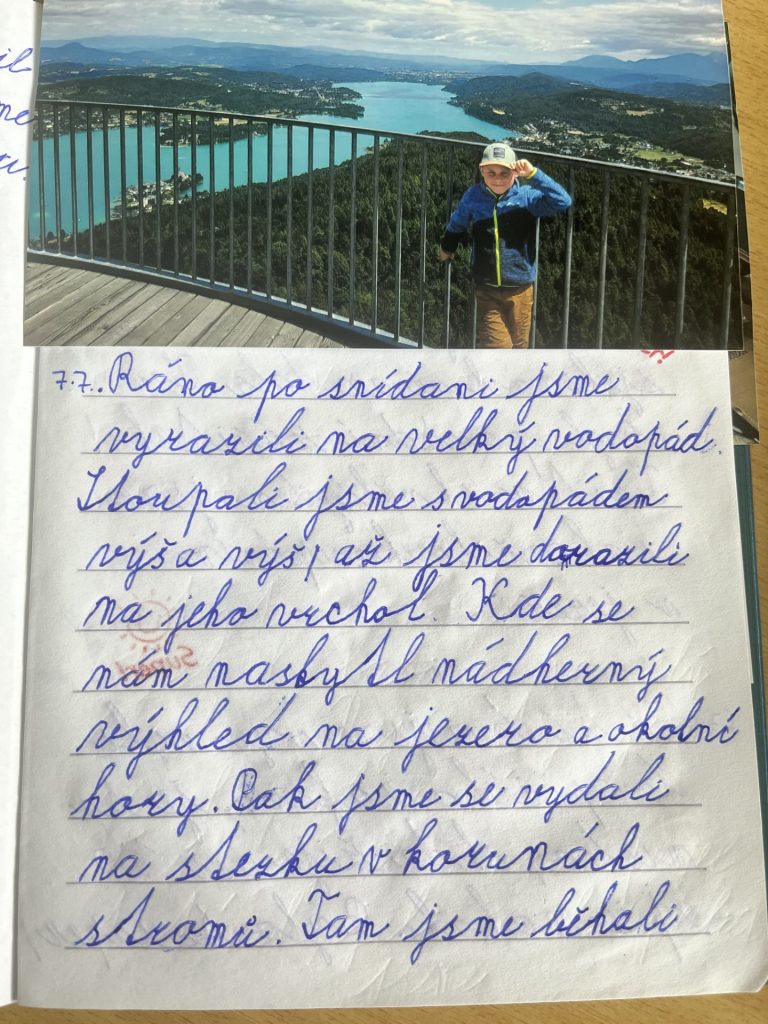 7.7. Ráno po snídani jsme
vyrazili na velký vodopád.
Stoupali jsme s vodopádem
výš a výš, až jsme dorazili
na jeho vrchol. Kde se
nám naskytl nádherný
výhled na jezero a okolní
hory. Pak jsme se vydali
na stezku v korunách
stromů. Tam jsme běhali
Super!